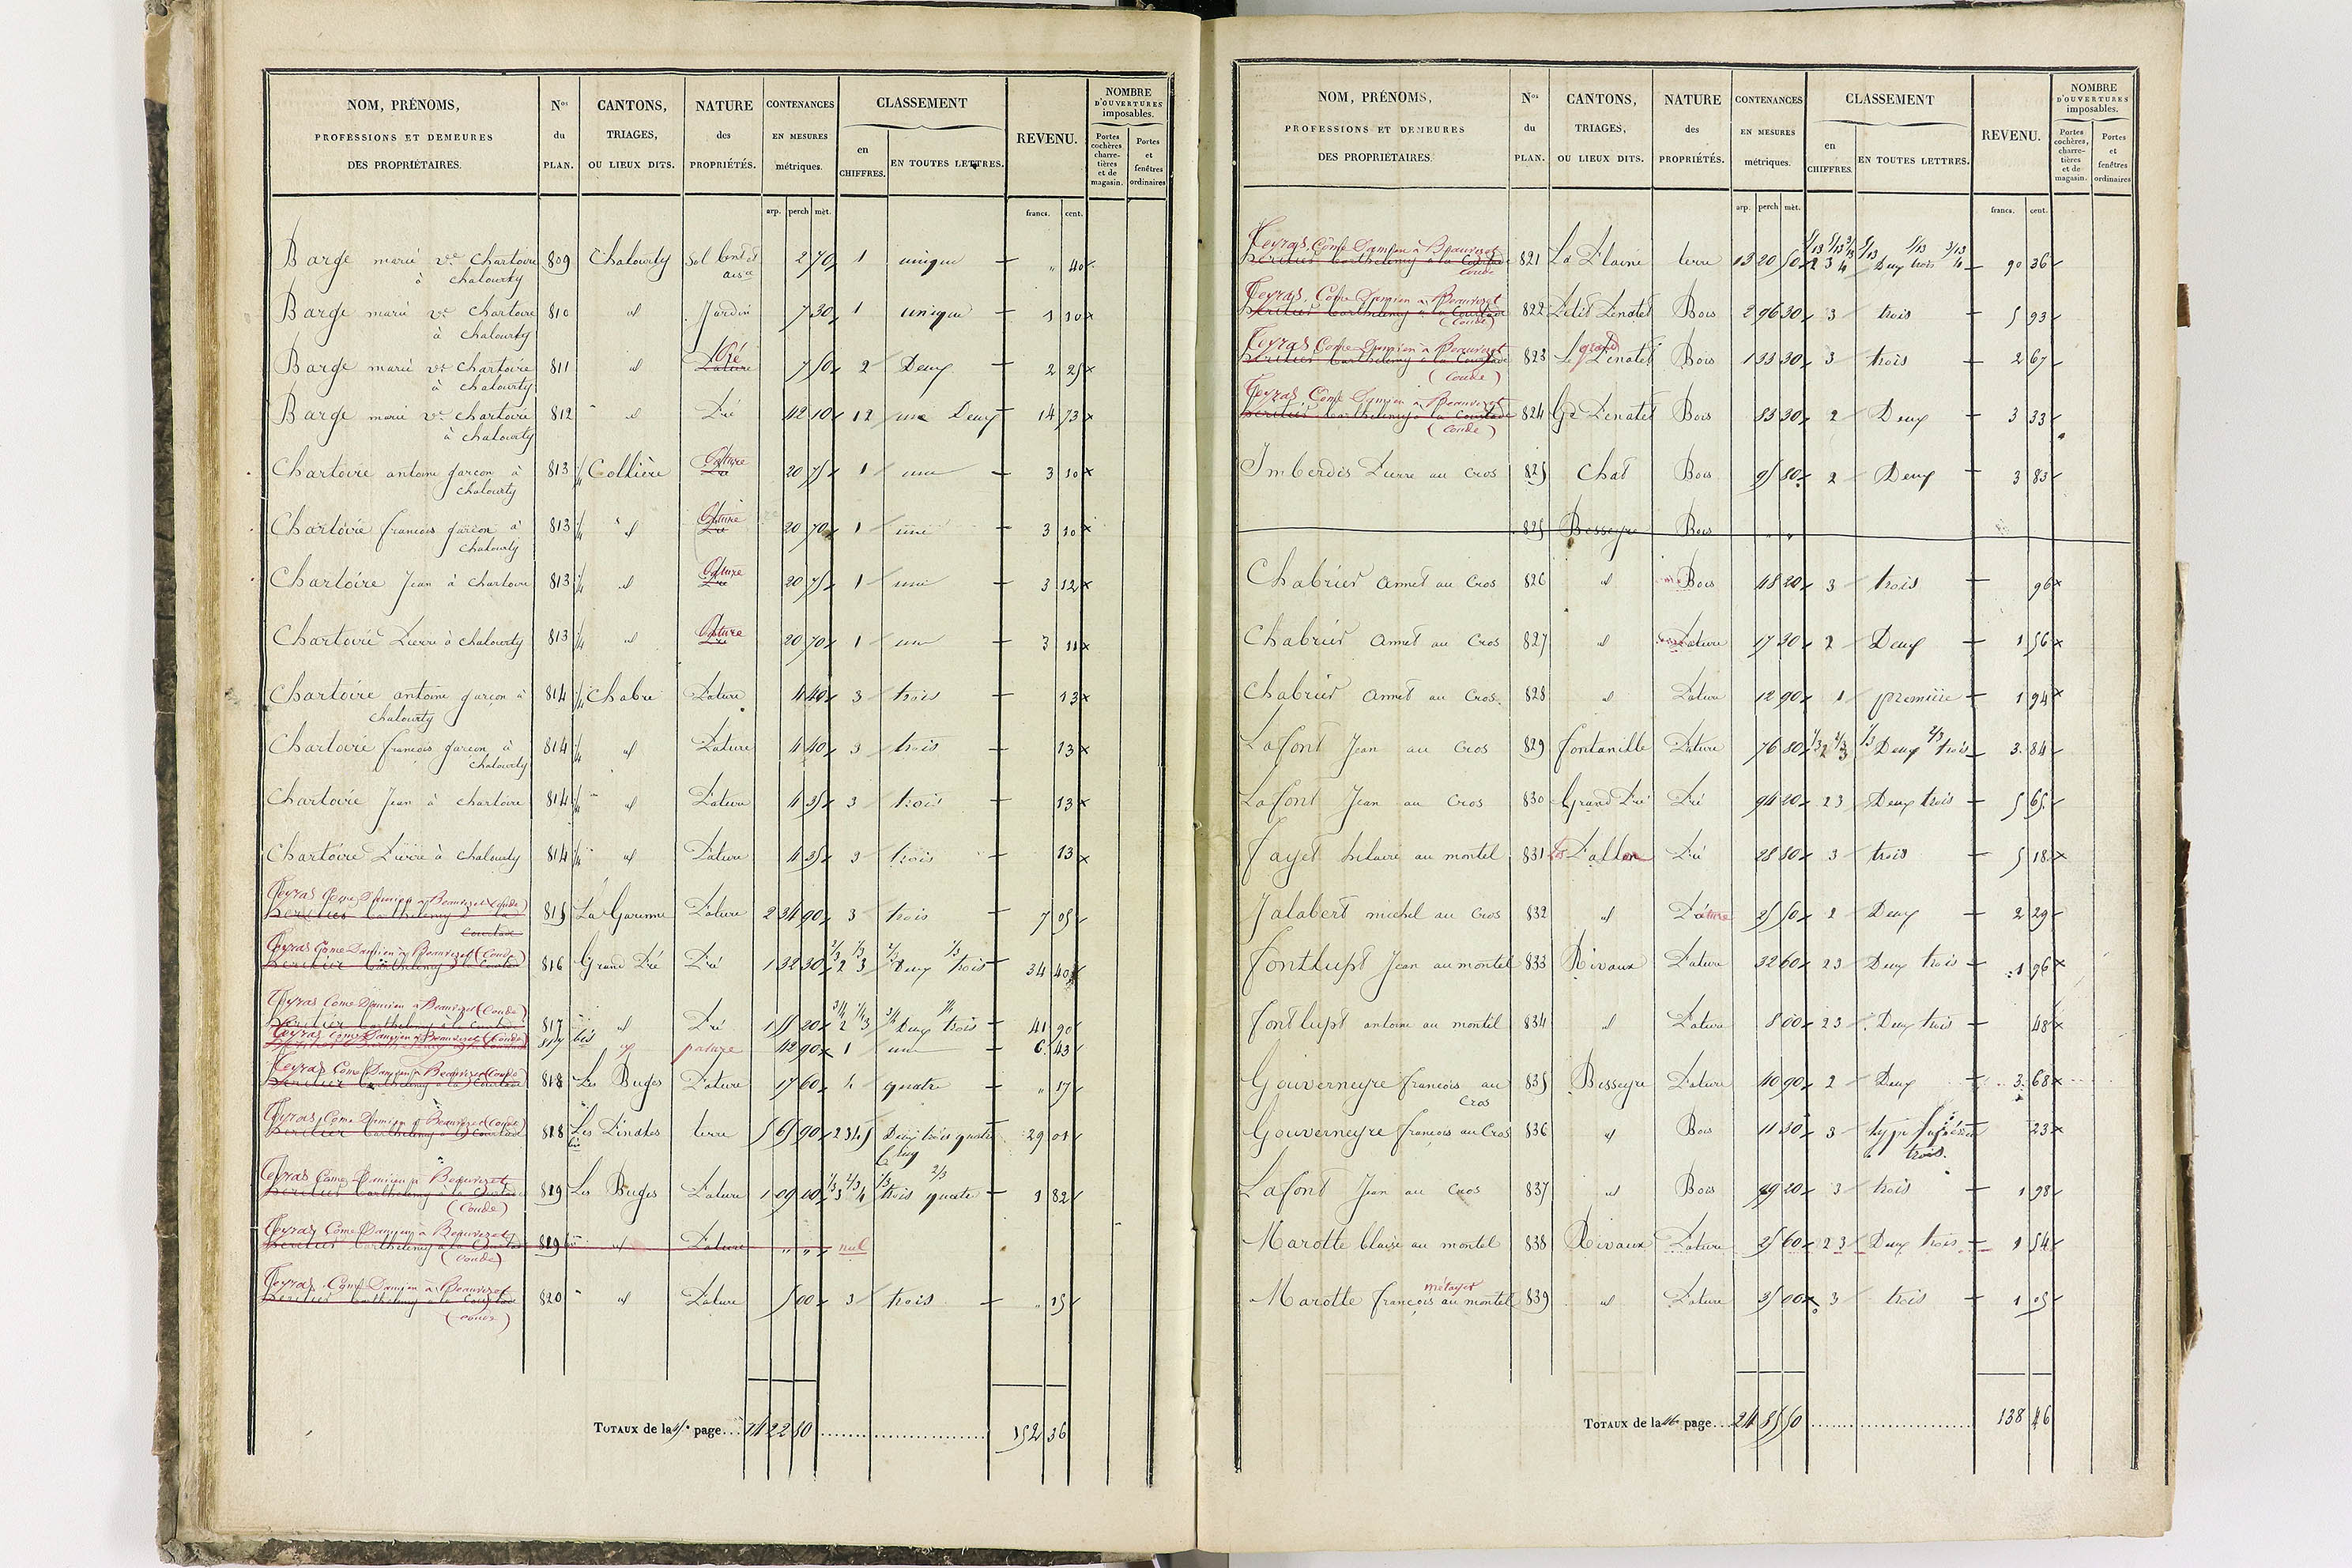 NOM, PRÉNOMS,
PROFESSIONS ET DEMEURES
DES PROPRIÉTAIRES.
Nos du PLAN.
CANTONS, TRIAGES, OU LIEUX DITS.
NATURE des PROPRIÉTÉS.
CONTENANCES EN MESURES métriques.
CLASSEMENT
en CHIFFRES.
EN TOUTES LETTRES.
REVENU.
NOMBRE D'OUVERTURES imposables.
Portes cochères charretières et de magasin.
Portes et fenêtres ordinaires
arp. perch mèt. francs. cent.
Barge marie ve Chartoire 809 Chalourty Sol 2 70 1 unique " 40
à chalourty
Barge marie ve Chartoire 810 id Jardin 7 30 1 unique 1 10 x
à chalourty
Barge marie ve chartoire 811 id Pré Pature 7 50 2 Deux 2 25 x
à chalourty
Barge marie ve chartoire 812 id Pré 42 10 12 une Deux 14 73 x
à chalourty
Chartoire antoine garcon à 813 1/4 Collière Pature Pré 20 75 1 une 3 10 x
chalourty
Chartoire francois garcon à 813 1/4 id Pature Pré 20 70 1 une 3 10 x
chalourty
Chartoire Jean à chartoire 813 1/4 id Pature Pré 20 75 1 une 3 12 x
Chartoire Pierre à chalourty 813 1/4 id Pature Pré 20 70 1 une 3 11 x
Chartoire antoine garcon à 814 1/4 Chabre Pature 4 40 3 trois 13 x
chalourty
Chartoire francois garcon à 814 1/4 id Pature 4 40 3 trois 13 x
chalourty
Chartoire Jean à chartoire 814 1/4 id Pature 4 35 3 trois 13 x
Chartoire Pierre à chalourty 814 1/4 id Pature 4 35 3 trois 13 x
Teyras Come Damien à Beauvezet (Coude)
barthelemy 815 La Garenne Pature 2 34 90 3 trois 7 05
Courtade
Teyras Come Damien à Beauvezet (Coude)
barthelemy à la Courtade 816 Grand Pré Pré 1 32 30 2/3 2 1/3 3 2/3 Deux 1/3 trois 34 40
Teyras Come Damien à Beauvezet (Coude)
barthelemy à la Courtade 817 id Pré 1 55 20 3/4 2 1/4 3 3/4 Deux 1/4 trois 41 90
Teyras Come Damien à Beauvezet (Coude)
817 bis id pature 42 90 1 une 6 43
Teyras Come Damien à Beauvezet (Coude)
barthelemy à la Courtade 818 Les Buges Pature 17 60 4 quatre " 17
Teyras Come Damien à Beauvezet (Coude)
barthelemy à la Courtade 818 bis Les Pinates terre 5 65 90 2345 Deux trois quatre Cinq 29 01
Teyras Come Damien à Beauvezet
barthelemy à la Courtade 819 Les Buges Pature 1 09 10 1/3 3 2/3 4 1/3 trois 2/3 quatre 1 82
(Coude)
Teyras Come Damien à Beauvezet
barthelemy à la Courtade 819 bis id Pature " " nul
(Coude)
Teyras Come Damien à Beauvezet
barthelemy à la Courtade 820 id Pature 5 00 3 trois " 15
(Coude)
TOTAUX de la 45e page... 14 22 80 ........ 152 36
NOM, PRÉNOMS,
PROFESSIONS ET DEMEURES
DES PROPRIÉTAIRES.
Nos du PLAN.
CANTONS, TRIAGES, OU LIEUX DITS.
NATURE des PROPRIÉTÉS.
CONTENANCES EN MESURES métriques.
CLASSEMENT
en CHIFFRES.
EN TOUTES LETTRES.
REVENU.
NOMBRE D'OUVERTURES imposables.
Portes cochères, charretières et de magasin.
Portes et fenêtres ordinaires
arp. perch mèt. francs. cent.
Teyras, Côme Damien à Beauvezet
barthelemy à la Courtade 821 La Plaine terre 13 20 50 2 3 4 Deux trois 4 90 36
Coude
Teyras, Côme Damien à Beauvezet
barthelemy à la Courtade 822 Petit Pinatet Bois 2 96 30 3 trois 5 93
(Coude)
Teyras Come Damien à Beauvezet
barthelemy à la Courtade 823 Le grand Pinatet Bois 1 33 30 3 trois 2 67
(Coude)
Teyras, Come Damien à Beauvezet
barthelemy à la Courtade 824 Gd Pinatet Bois 83 30 2 Deux 3 33
(Coude)
Imberdis Pierre au Cros 825 Chat Bois 95 80 2 Deux 3 83
825 Besseyre Bois " "
Chabrier Annet au Cros 826 id Bois 48 20 3 trois 96 x
Chabrier Annet au Cros 827 id Pature 17 30 2 Deux 1 56 x
Chabrier Annet au Cros. 828 id Pature 12 90 1 première 1 94 x
Lafont Jean au Cros 829 fontanille Pature 76 80 1/3 2 2/3 3 1/3 Deux 2/3 trois 3 84
Lafont Jean au Cros 830 Grand Pré Pré 94 20 2 3 Deux trois 5 65
Fayet hilaire au montel 831 Pré 28 80 3 trois 5 18 x
Jalabert michel au Cros 832 id Pature 25 50 2 Deux 2 29
Fontlupt Jean au montel 833 Rivaux Pature 32 60 2 3 Deux trois 1 96 x
fontlupt antoine au montel 834 id Pature 8 00 2 3 Deux trois 48 x
Gouverneyre francois au 835 Besseyre Pature 40 90 2 Deux 3 68 x
Cros
Gouverneyre françois au Cros 836 id Bois 11 50 3 trois. 23 x
Lafont Jean au Cros 837 id Bois 99 20 3 trois 1 98
Marotte blaise au montel 838 Rivaux Pature 25 60 2 3 Deux trois 1 54
métayer
Marotte françois au montel 839 id Pature 35 00 3 trois 1 05
TOTAUX de la 46e page... 24 85 50 ........ 138 46